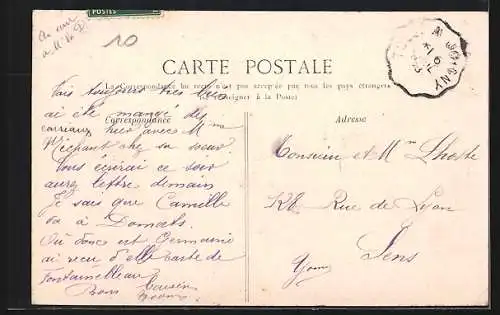 POSTES
10
CARTE POSTALE
La Correspondance au recto n'est pas acceptée par tous les pays étrangers
(Se renseigner à la Poste)
Correspondance
Vais toujours très bien
ai été mangé des
hier avec Mme
chez sa sœur
Vous écrirai ce soir
aurez lettre demain
Je sais que Camille
va à Domats.
Où donc est Germaine
ai reçu d'elle carte de
Fontainebleau
Bons baisers
Adresse
Monsieur et Mme Lhoste
Rue de Lyon
Sens
Yonne